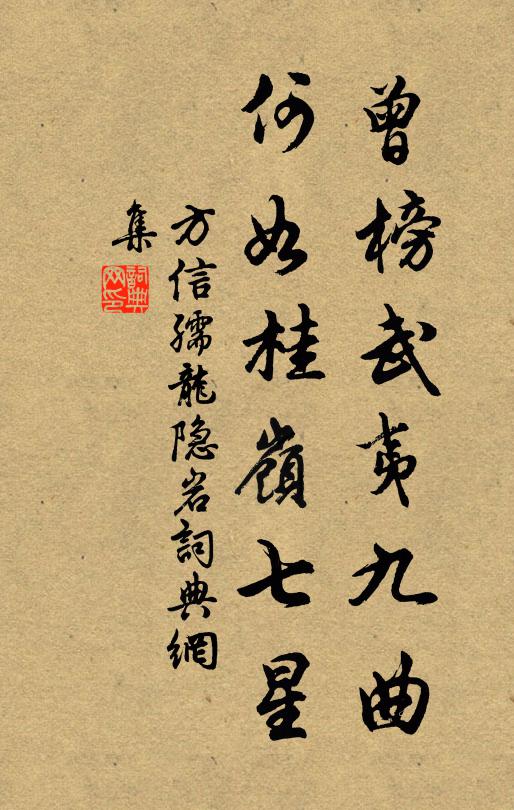 曾榜武夷九曲
何如桂嶺七星
方信孺龍隐岩詞典網
集
詞典网印